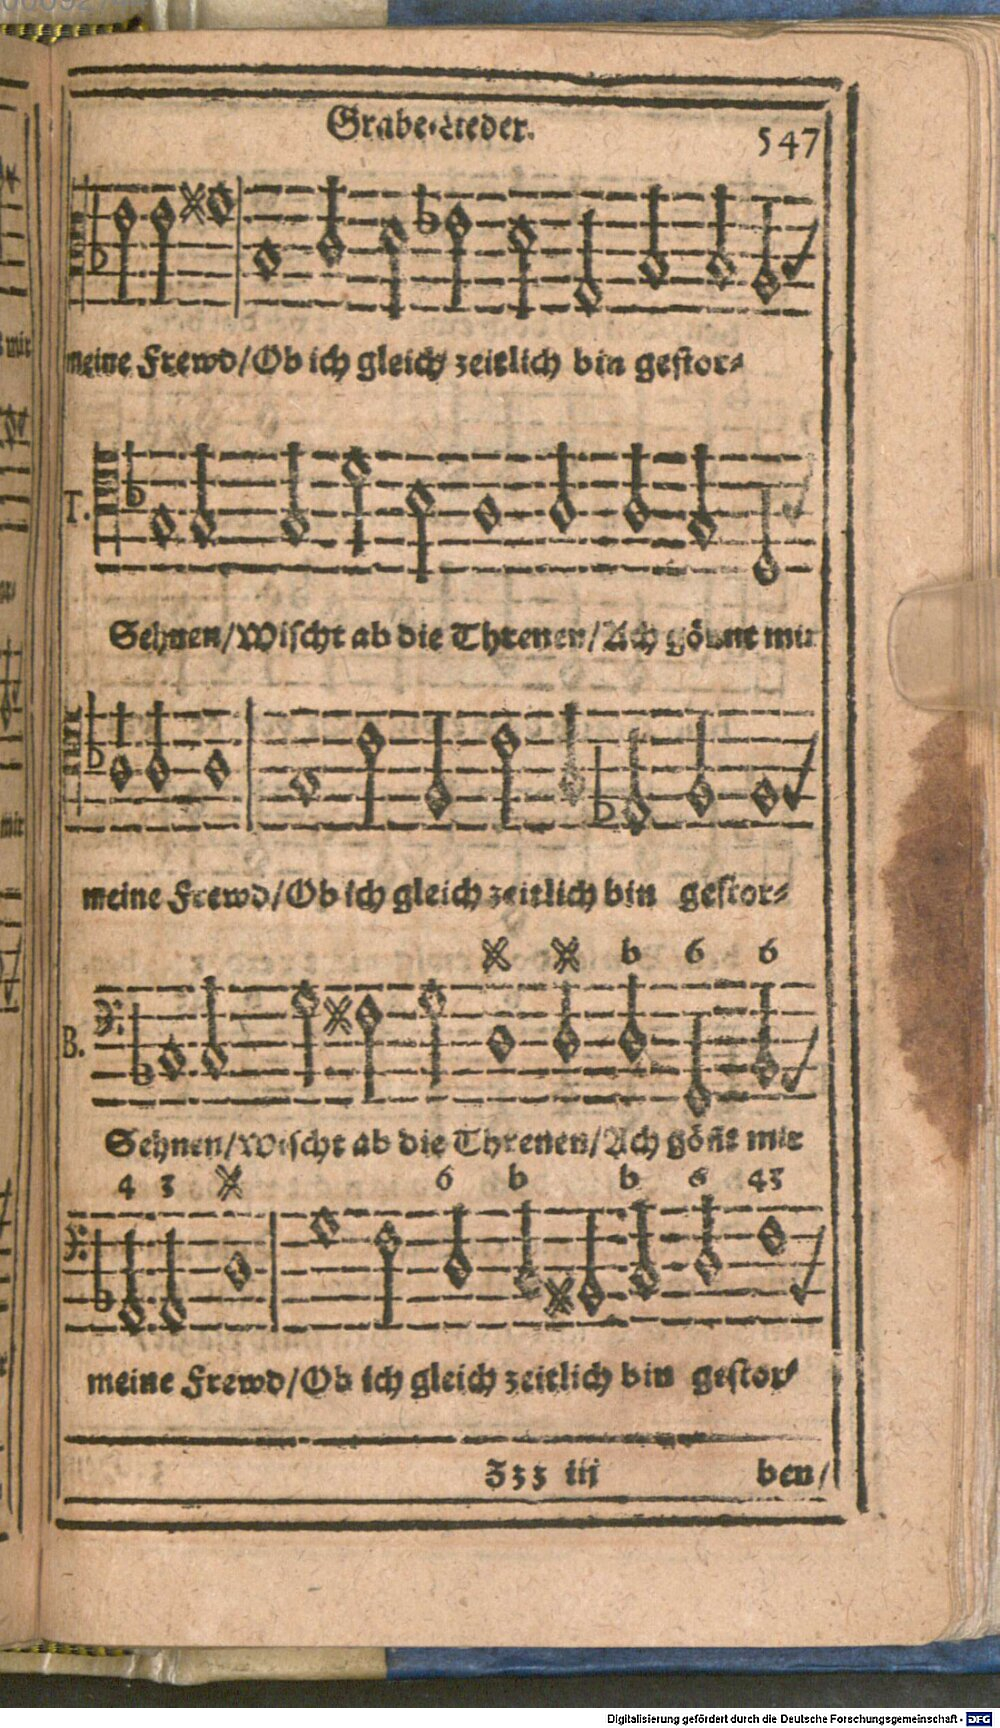 Grabe-Lieder.
547
meine Frewd/Ob ich gleich zeitlich bin gestor-
T.
Sehnen/Wischt ab die Threnen/Ach gönnt mir
meine Frewd/Ob ich gleich zeitlich bin gestor-
x x b 6 6
B.
Sehnen/Wischt ab die Threnen/Ach göñt mir
4 3 x 6 b b 6 43
meine Frewd/Ob ich gleich zeitlich bin gestor-
Zzz iii
ben/
Digitalisierung gefördert durch die Deutsche Forschungsgemeinschaft - DFG